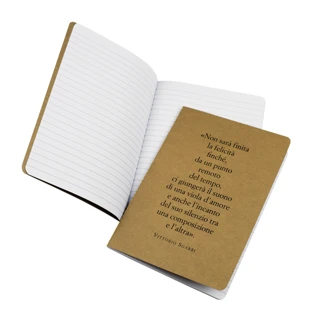 «Non sarà finita
la felicità
finché,
da un punto
remoto
del tempo,
ci giungerà il suono
di una viola d'amore
e anche l'incanto
del suo silenzio tra
una composizione
e l'altra».
Vittorio Sgarbi